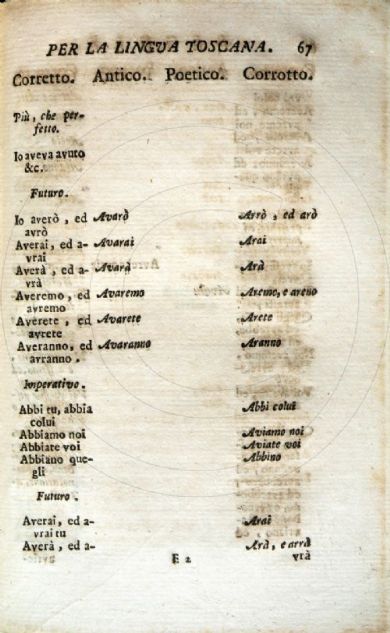 PER LA LINGVA TOSCANA. 67
Corretto. Antico. Poetico. Corrotto.
Più, che per-
fetto.
Io aveva avuto
&c.
Futuro.
Io averò, ed Avarò Arrò, ed arò
avrò
Averai, ed a- Avarai Arai
vrai
Averà, ed a- Avarà Arà
vrà
Averemo, ed Avaremo Aremo, e areno
avremo
Averete, ed Avarete Arete
avrete
Averanno, ed Avaranno Aranno
avranno.
Imperativo.
Abbi tu, abbia Abbi colui
colui
Abbiamo noi Aviamo noi
Abbiate voi Aviate voi
Abbiano que- Abbino
gli
Futuro.
Averai, ed a- Arai
vrai tu
Averà, ed a- Arà, e arrà
E 2 vrà